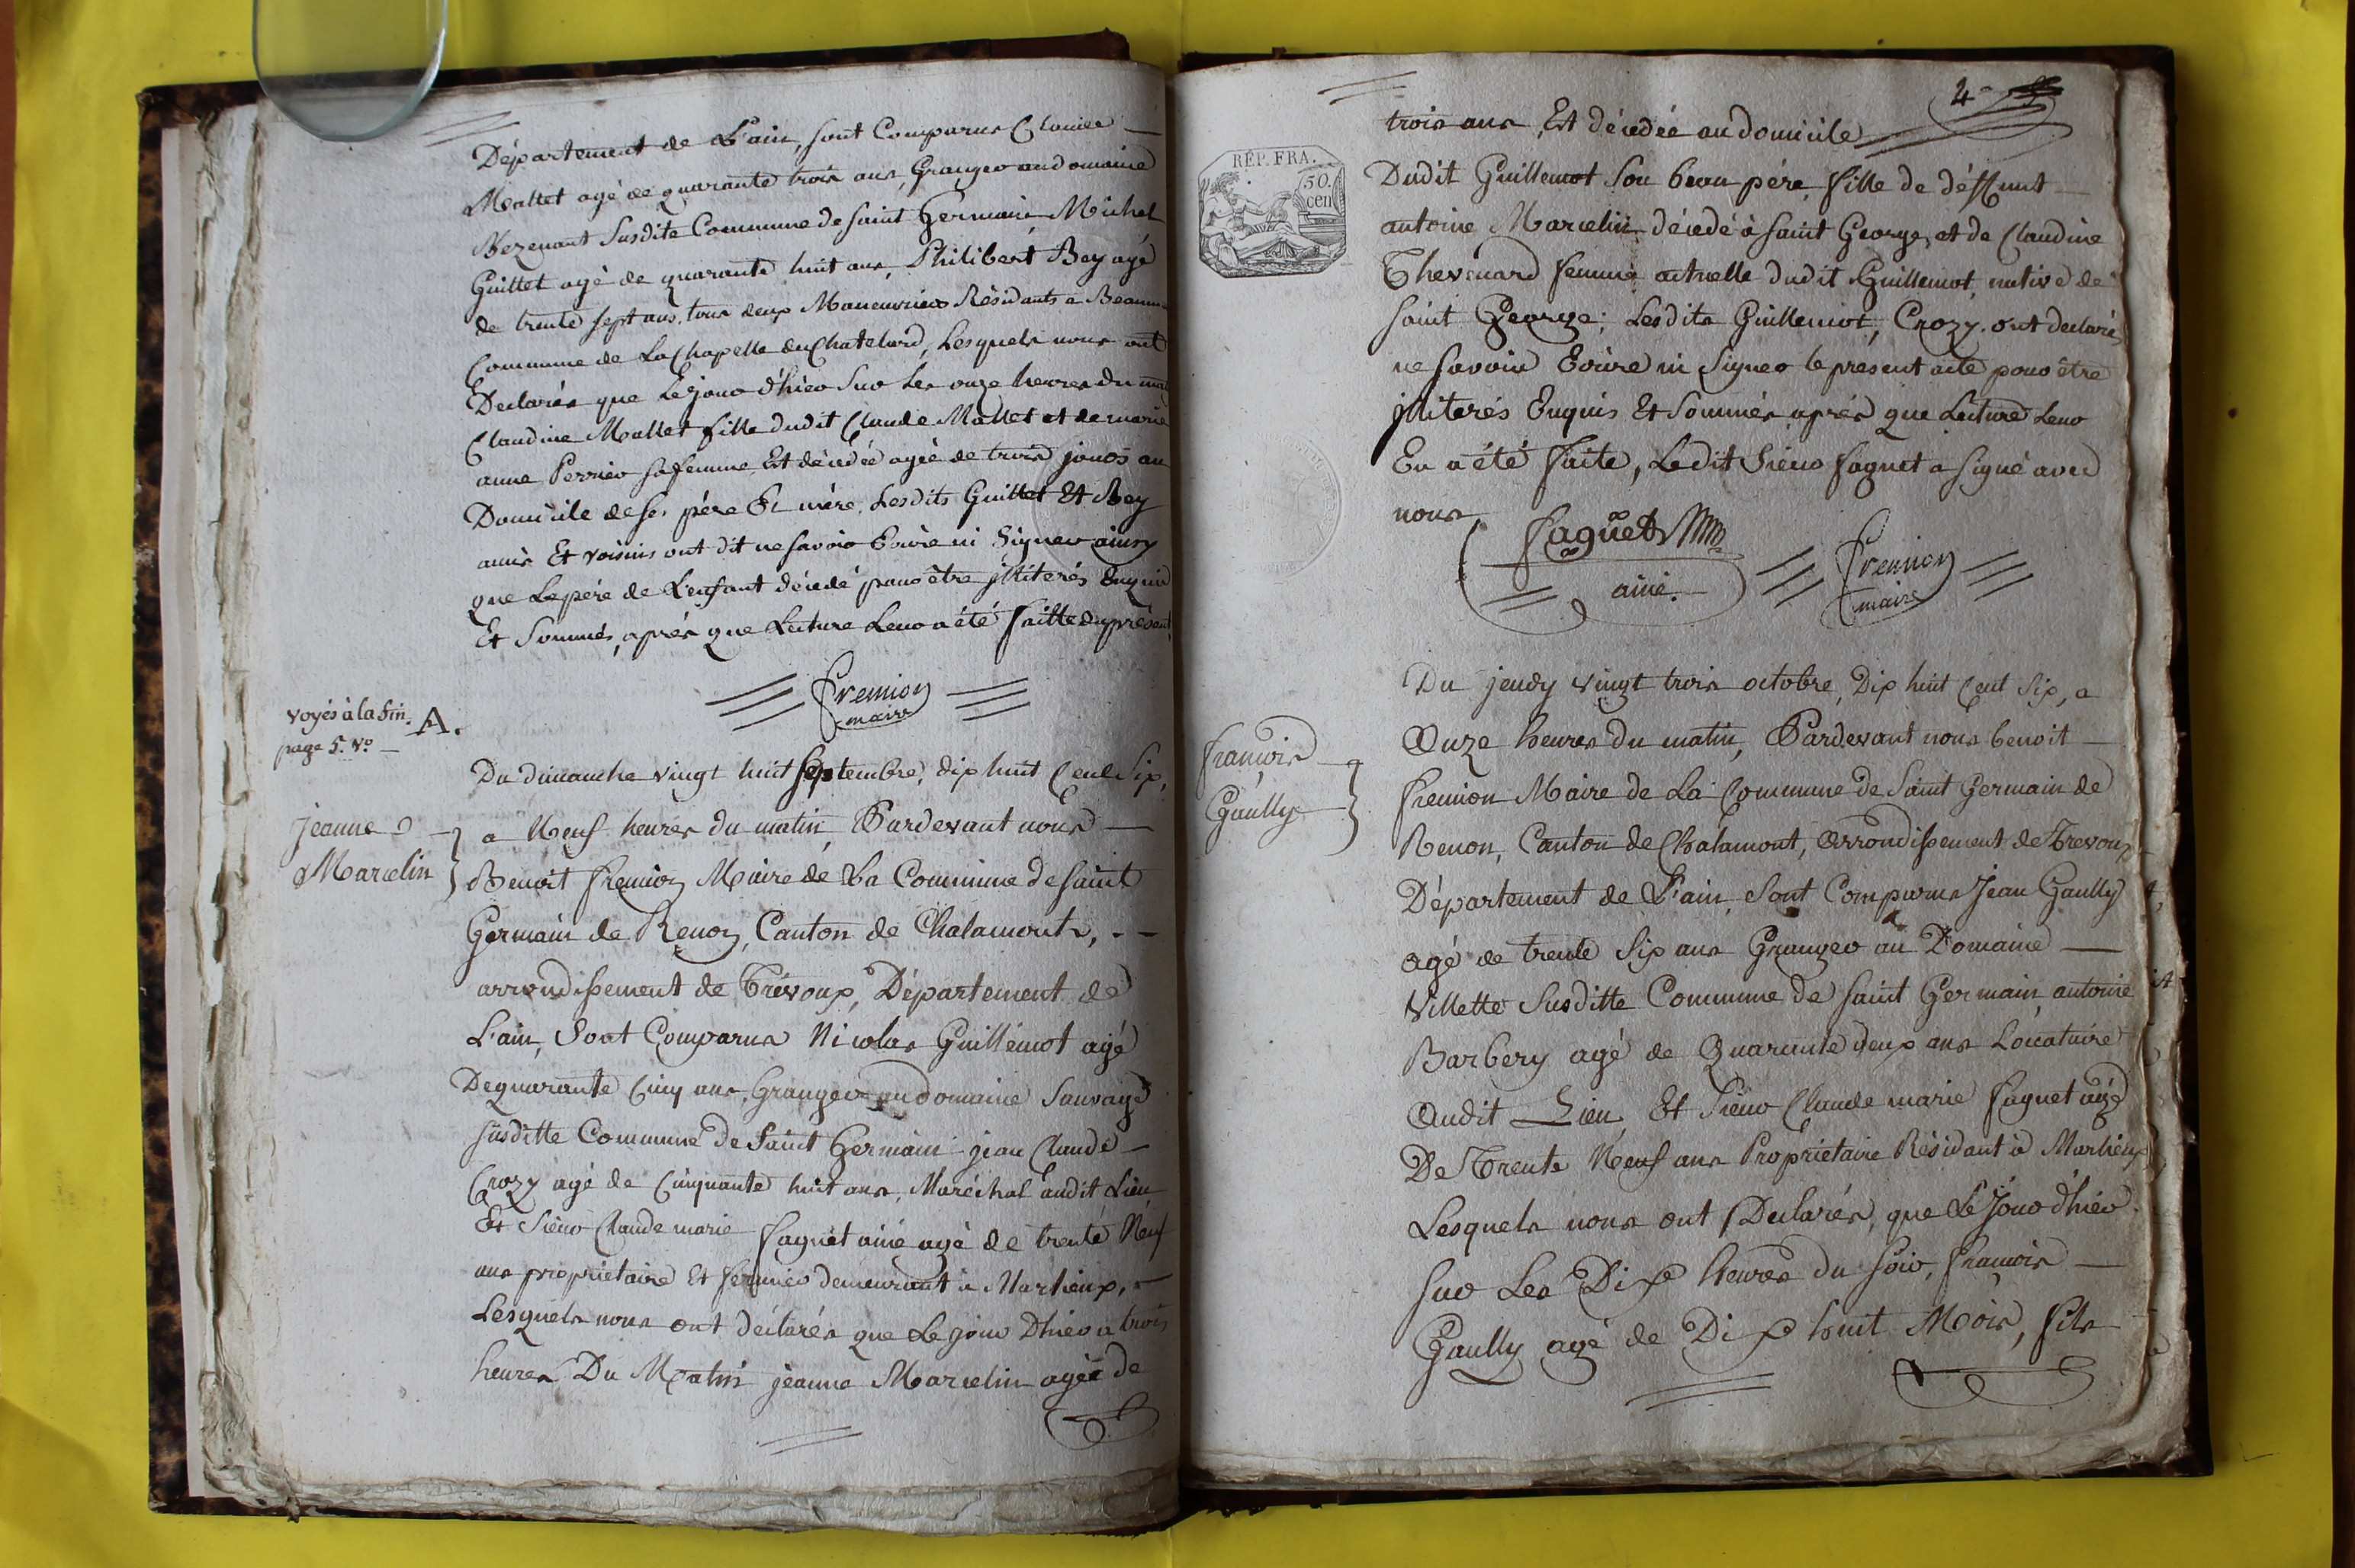 Département de L'ain, sont Comparus Claude
Mallet agé de quarante trois ans, Granger au domaine
Bezenant Susdite Commune de saint Germain, Michel
Guillet agé de quarante huit ans, Philibert Bey agé
de trente sept ans, tous deux Maneuvriers Résidants a Beaum
Commune de La Chapelle du Chatelard, Lesquels nous ont
Declarés que Le jour d'hier Sur Les onze heures du ma
Claudine Mallet fille dudit Claude Mallet et de marie
anne Perrier sa femme, Est décédée agée de trois jours au
Domicile de ses père Et mère. Lesdits Guillet Et Bey
amis Et voisins ont dit ne savoir Ecrire ni Signer ainsy
que Le père de L'enfant décédé pour être jlliterés Enquis
Et Sommés, après que Lecture Leur a été faitte du présent
fremion
maire
voyés à la fin. A.
page 5. v°
Du dimanche vingt huit septembre, dix huit Cent Six,
Jeanne
Marcelin
a Neuf heures du matin, Pardevant nous
Benoit fremion Maire de La Commune de saint
Germain de Renon, Canton de Chalamont,
arrondissement de Trévoux, Département de
L'ain, Sont Comparus Nicolas Guillemot agé
De quarante Cinq ans, Granger au domaine Sauvage
susditte Commune de saint Germain jean Claude
Crozy agé de Cinquante huit ans, Maréchal audit Lieu
Et Sieur Claude marie faguet ainé agé de trente Neuf
ans propriétaire Et fermier demeurant à Marlieux,
Lesquels nous ont déclarés que Le jour Dhier a trois
heures Du Matin jeanne Marcelin agée de
4
trois ans, Est décédée au domicile
RÉP. FRA.
50.
cen
Dudit Guillemot Son beau père, fille de déffunt
antoine Marcelin décédé à saint George, et de Claudine
Thevenard femme actuelle dudit Guillemot, native de
saint George; Lesdits Guillemot, Crozy ont declarés
ne savoir Ecrire ni Signer le present acte pour être
jlliterés Enquis Et Sommés après que Lecture Leur
En a été faite, Ledit Sieur faguet a signé avec
nous
faguet
ainé.
fremion
maire
Du jeudy vingt trois octobre, Dix huit Cent Six, a
François
Gaully
Onze heures du matin, Pardevant nous benoit
fremion Maire de La Commune de Saint Germain de
Renon, Canton de Chalamont, arrondissement de Trevoux
Département de L'ain, Sont Comparus Jean Gaully
agé de trente Six ans Granger au Domaine
Villette Susditte Commune de saint Germain, antoine
Barbery agé de Quarante deux ans Locataire
Audit Lieu, Et Sieur Claude marie faguet agé
De Trente Neuf ans Propriétaire Résidant à Marlieux
Lesquels nous ont Declarés, que Le Jour d'hier
Sur Les Dix heures du soir, François
Gaully agé de Dix huit Mois, fils